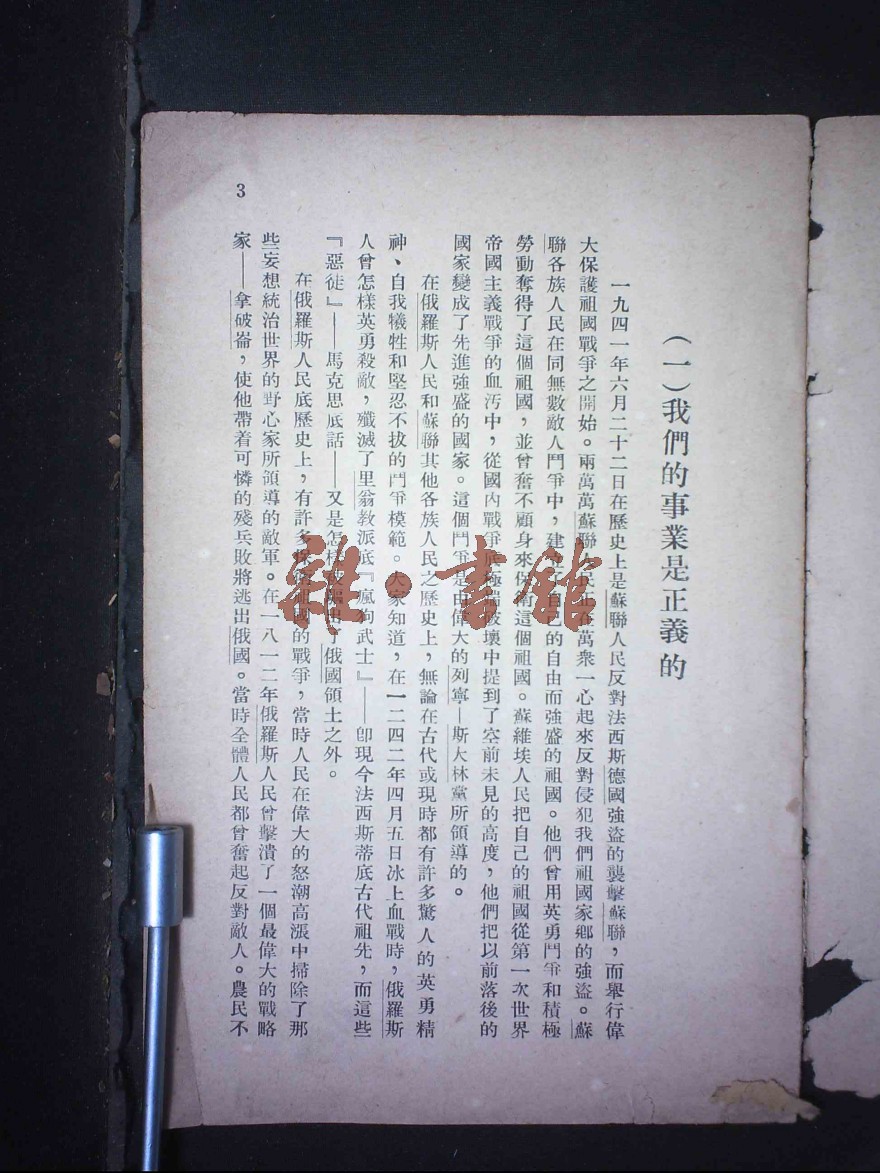 (一)我們的事業是正義的
一九四一年六月二十二日在歷史上是蘇聯人民反對法西斯德國強盜的襲擊蘇聯,而舉行偉
大保護祖國戰爭之開始。兩萬萬蘇聯人民正在萬衆一心起來反對侵犯我們祖國家鄉的強盜。蘇
聯各族人民在同無數敵人鬥爭中,建立了自己的自由而強盛的祖國。他們曾用英勇鬥爭和積極
勞動奪得了這個祖國,並曾奮不顧身來保衛這個祖國。蘇維埃人民把自己的祖國從第一次世界
帝國主義戰爭的血汚中,從國內戰爭底極端破壞中提到了空前未見的高度,他們把以前落後的
國家變成了先進強盛的國家。這個鬥爭是由偉大的列寧—斯大林黨所領導的。
在俄羅斯人民和蘇聯其他各族人民之歷史上,無論在古代或現時都有許多驚人的英勇精
神、自我犧牲和堅忍不拔的鬥爭模範。大家知道,在一二四二年四月五日冰上血戰時,俄羅斯
人曾怎樣英勇殺敵,殲滅了里翁教派底『瘋狗武士』——卽現今法西斯蒂底古代祖先,而這些
『惡徒』——馬克思底話——又是怎樣被驅出了俄國領土之外。
在俄羅斯人民底歷史上,有許多保衛祖國的戰爭,當時人民在偉大的怒潮高漲中掃除了那
些妄想統治世界的野心家所領導的敵軍。在一八一二年俄羅斯人民曾擊潰了一個最偉大的戰略
家——拿破崙,使他帶着可憐的殘兵敗將逃出俄國。當時全體人民都曾奮起反對敵人。農民不
3
雜·書館